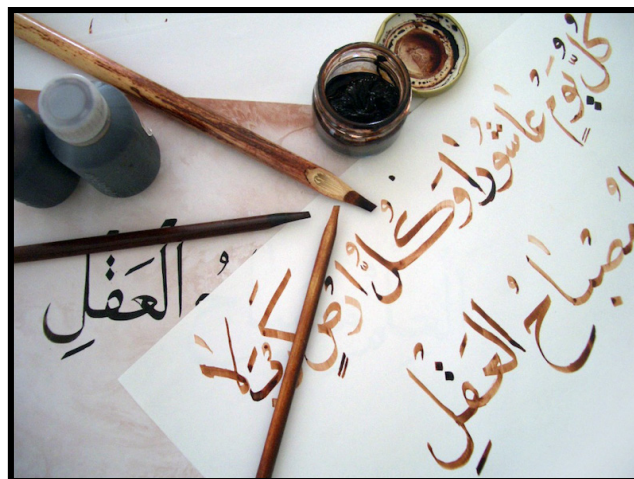 كُلُّ يَوْمٍ عَاشُورَا وَكُلُّ اَرْضٍ كَرْبَلَا
مِصْبَاحُ العَقْلِ
العَقْلِ